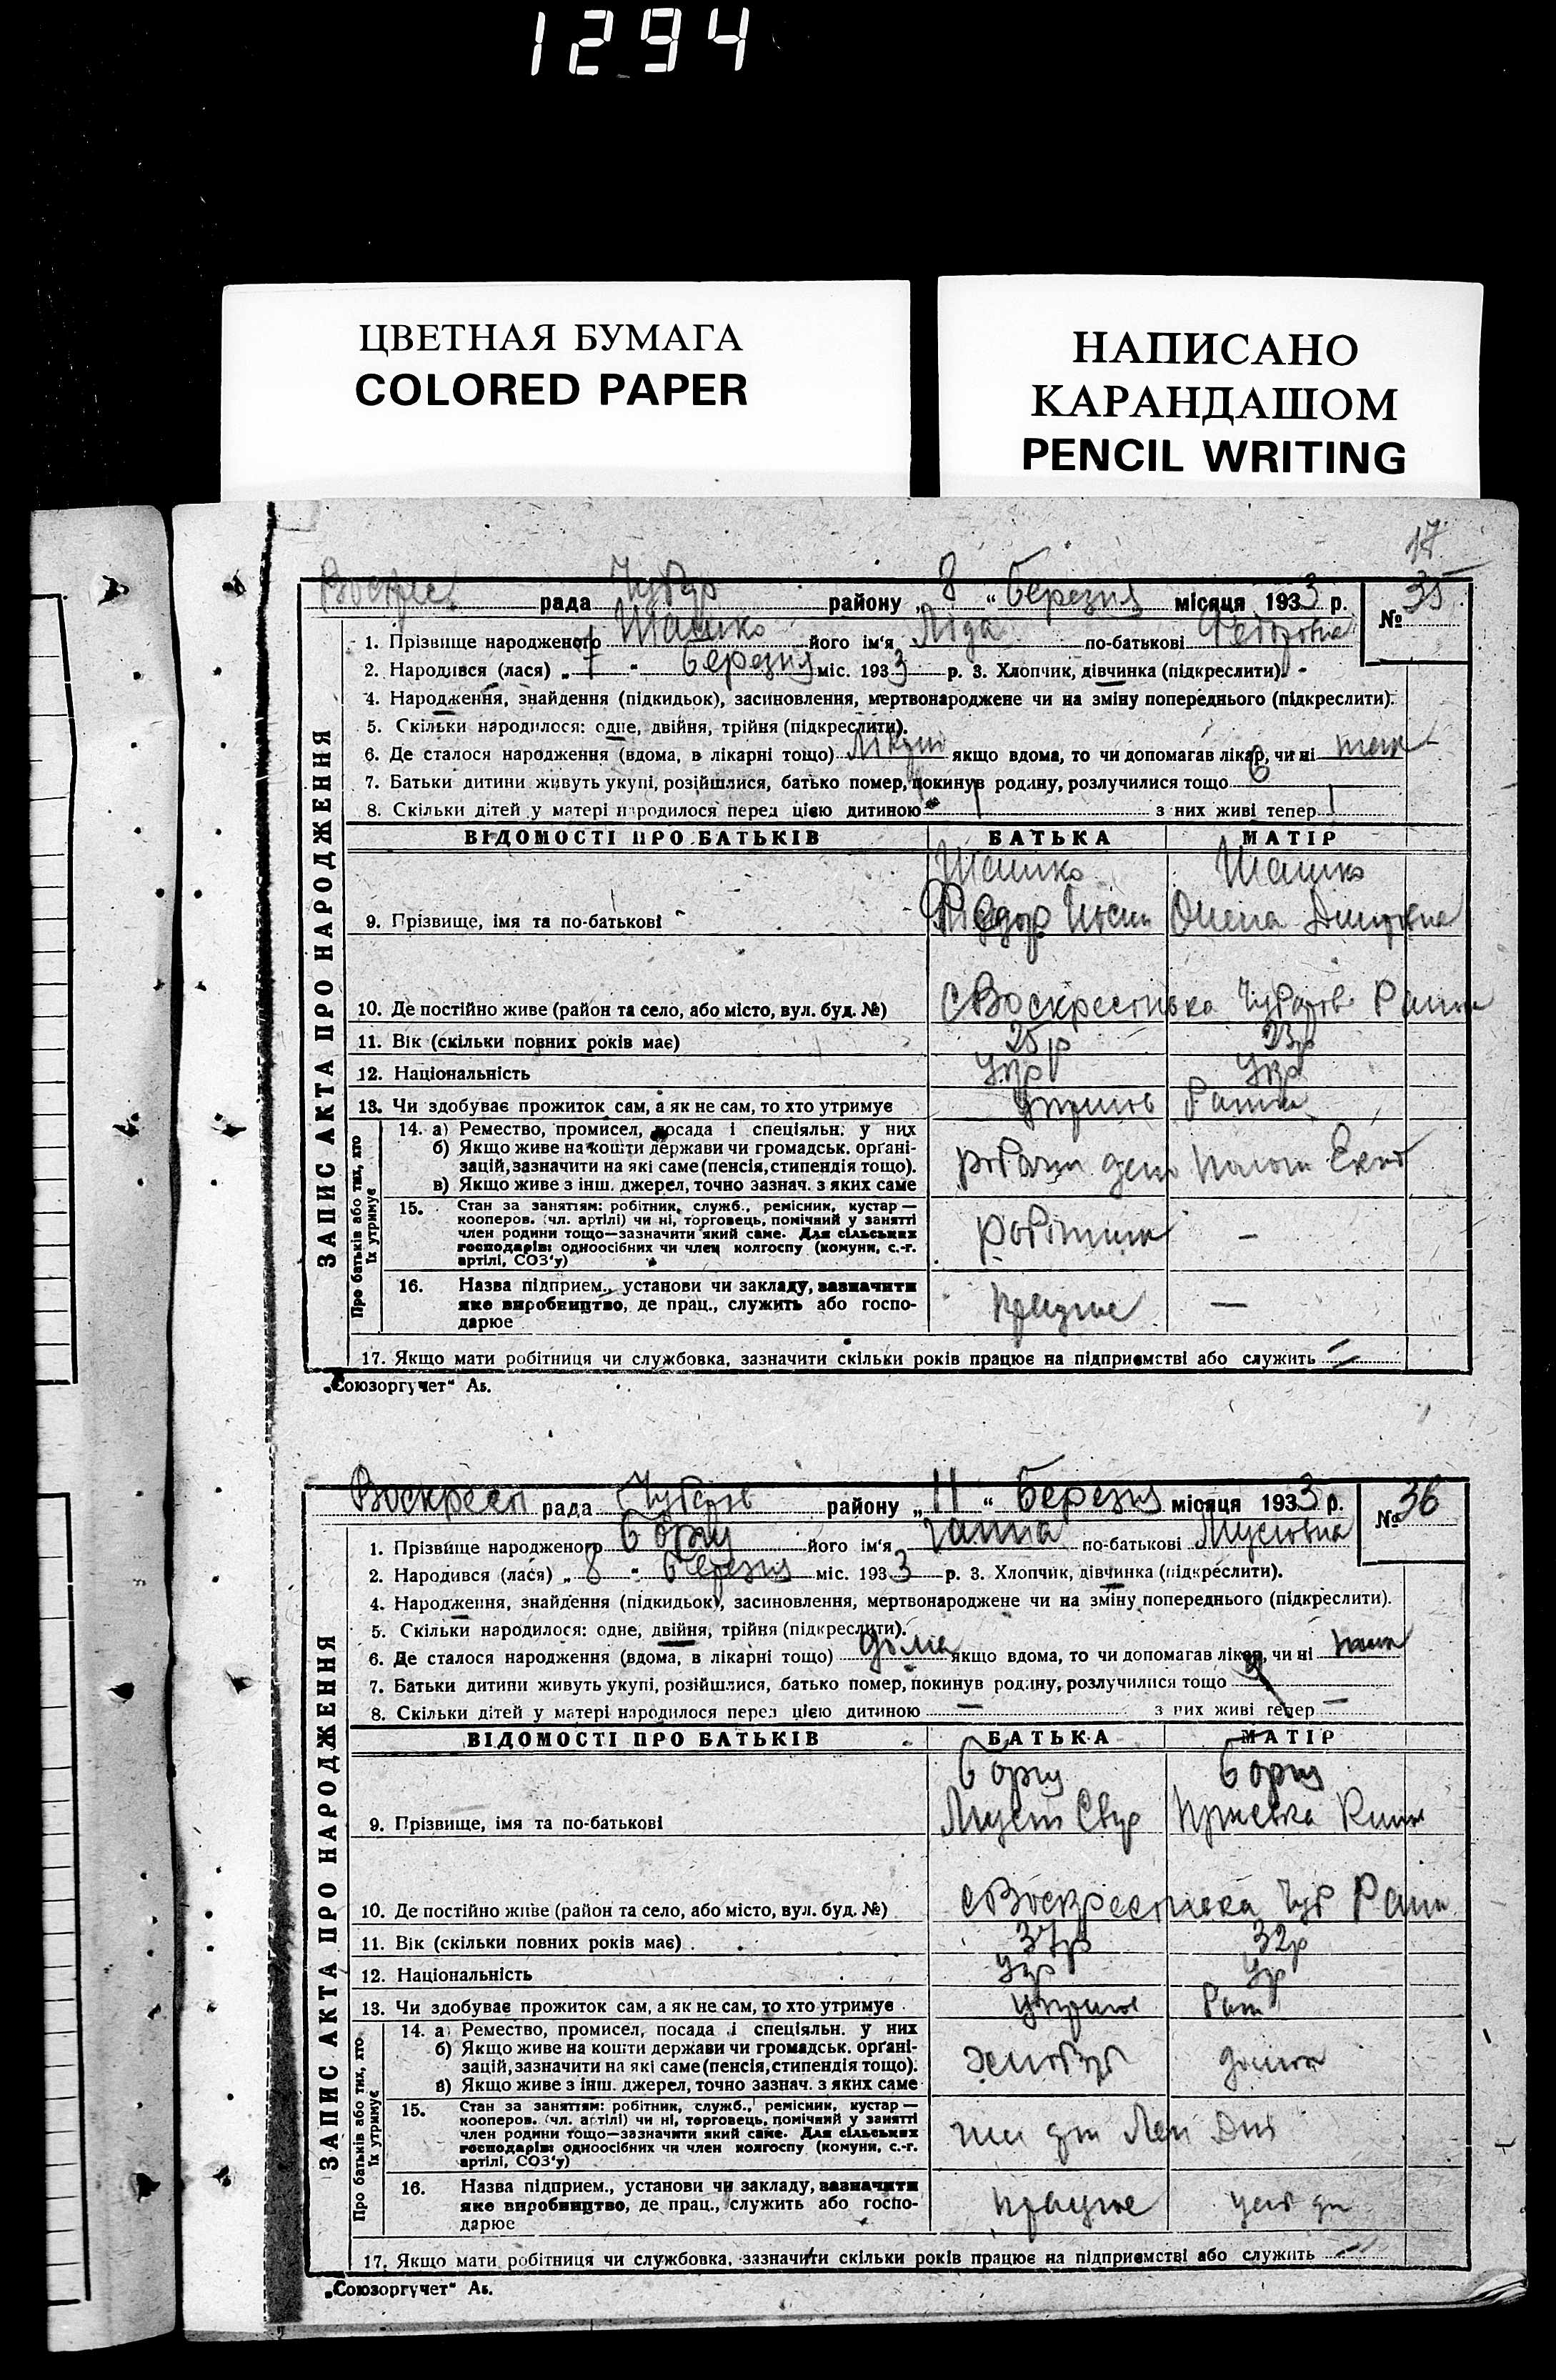 1294
ЦВЕТНАЯ БУМАГА
COLORED PAPER
НАПИСАНО
КАРАНДАШОМ
PENCIL WRITING
17
ЗАПИС АКТА ПРО НАРОДЖЕННЯ
Воскрес рада Чубар району „8“ березня місяця 1933 р. № 35
1. Прізвище народженого Шашко його ім'я Ліда по-батькові Федоровна
2. Народився (лася) „7“ березня міс. 1933 р. 3. Хлопчик, дівчинка (підкреслити).
4. Народження, знайдення (підкидьок), засиновлення, мертвонароджене чи на зміну попереднього (підкреслити).
5. Скільки народилося: одне, двійня, трійня (підкреслити).
6. Де сталося народження (вдома, в лікарні тощо) якщо вдома, то чи допомагав лікар, чи ні
7. Батьки дитини живуть укупі, розійшлися, батько помер, покинув родину, розлучилися тощо
8. Скільки дітей у матері народилося перед цією дитиною 1 з них живі тепер 1
ВІДОМОСТІ ПРО БАТЬКІВ БАТЬКА МАТІР
Шашко Шашко
9. Прізвище, імя та по-батькові Федор Олена
10. Де постійно живе (район та село, або місто, вул. буд. №) с Воскресенська
11. Вік (скільки повних років має) 25р 23р
12. Національність Укр Укр
13. Чи здобуває прожиток сам, а як не сам, то хто утримує
Про батьків або тих, хто їх утримує
14. а) Ремество, промисел, посада і спеціяльн. у них
б) Якщо живе на кошти держави чи громадськ. органі-
зацій, зазначити на які саме (пенсія, стипендія тощо).
в) Якщо живе з інш. джерел, точно зазнач. з яких саме
15. Стан за заняттям: робітник, служб., ремісник, кустар —
кооперов. (чл. артілі) чи ні, торговець, помічний у занятті
член родини тощо—зазначити який саме. Для сільських
господарів: одноосібних чи член колгоспу (комуни, с.-г.
артілі, СОЗ'у)
робітник —
16. Назва підприєм., установи чи закладу, зазначити
яке виробництво, де прац., служить або госпо-
дарює
працює —
17. Якщо мати робітниця чи службовка, зазначити скільки років працює на підприємстві або служить
„Союзоргучет“ Аб.
ЗАПИС АКТА ПРО НАРОДЖЕННЯ
Воскресен рада Чубарів району „11“ березня місяця 1933 р. № 36
1. Прізвище народженого Борщ його ім'я Ганна по-батькові Мусіовна
2. Народився (лася) „8“ березня міс. 1933 р. 3. Хлопчик, дівчинка (підкреслити).
4. Народження, знайдення (підкидьок), засиновлення, мертвонароджене чи на зміну попереднього (підкреслити).
5. Скільки народилося: одне, двійня, трійня (підкреслити).
6. Де сталося народження (вдома, в лікарні тощо) дома якщо вдома, то чи допомагав лікар, чи ні
7. Батьки дитини живуть укупі, розійшлися, батько помер, покинув родину, розлучилися тощо
8. Скільки дітей у матері народилося перед цією дитиною — з них живі тепер —
ВІДОМОСТІ ПРО БАТЬКІВ БАТЬКА МАТІР
Борщ Борщ
9. Прізвище, імя та по-батькові Мусій
10. Де постійно живе (район та село, або місто, вул. буд. №) с Воскресенська Чуб
11. Вік (скільки повних років має) 37р 32р
12. Національність Укр Ур
13. Чи здобуває прожиток сам, а як не сам, то хто утримує
Про батьків або тих, хто їх утримує
14. а) Ремество, промисел, посада і спеціяльн. у них
б) Якщо живе на кошти держави чи громадськ. органі-
зацій, зазначити на які саме (пенсія, стипендія тощо).
в) Якщо живе з інш. джерел, точно зазнач. з яких саме
15. Стан за заняттям: робітник, служб., ремісник, кустар —
кооперов. (чл. артілі) чи ні, торговець, помічний у занятті
член родини тощо—зазначити який саме. Для сільських
господарів: одноосібних чи член колгоспу (комуни, с.-г.
артілі, СОЗ'у)
16. Назва підприєм., установи чи закладу, зазначити
яке виробництво, де прац., служить або госпо-
дарює
працює
17. Якщо мати робітниця чи службовка, зазначити скільки років працює на підприємстві або служить
„Союзоргучет“ Аб.